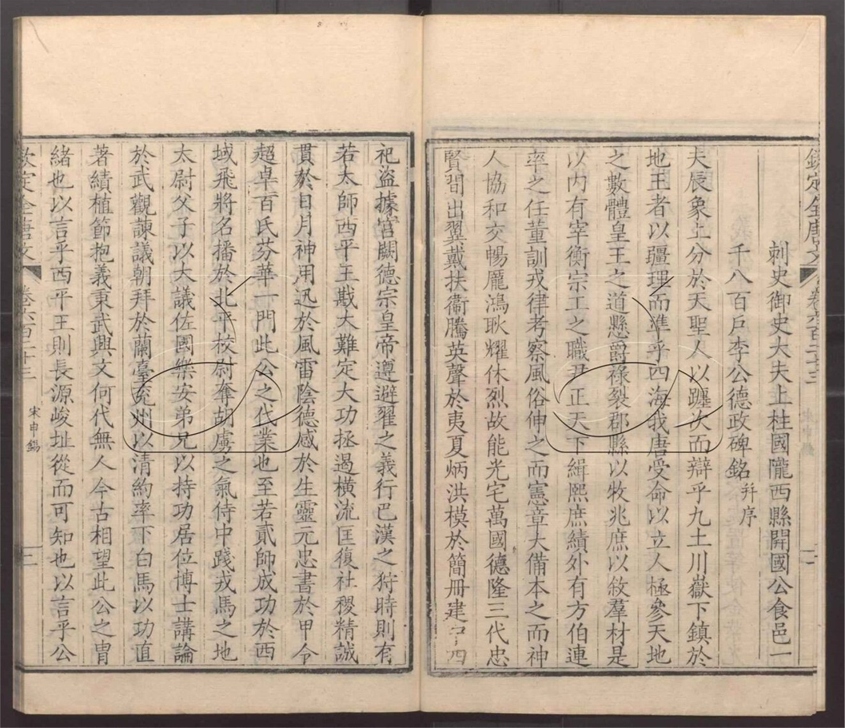 欽定全唐文 卷六百二十三
刺史御史大夫上柱國隴西縣開國公食邑一
千八百戶李公德政碑銘 并序
夫辰象上分於天聖人以躔次而辯乎九土川嶽下鎮於
地王者以疆理而準乎四海我唐受命以立人極參天地
之數體皇王之道懸爵祿裂郡縣以牧兆庶以敘羣材是
以内有宰衡宗工之職尹正天下緝熙庶績外有方伯連
率之任董訓戎律考察風俗伸之而憲章大備本之而神
人協和交暢龎鴻耿耀休烈故能光宅萬國德隆三代忠
賢間出翼戴扶衞騰英聲於夷夏炳洪模於簡冊建中四
祀盜據宮闕德宗皇帝遵避翟之義行巴漢之狩時則有
若太師西平王戡大難定大功拯遏横流匡復社稷精誠
貫於日月神用迅於風雷陰德感於生靈元忠書於甲令
超卓百氏芬華一門此公之代業也至若貳師成功於西
域飛將名播於北平校尉奪胡虜之氣侍中踐戎馬之地
太尉父子以大議佐國樂安弟兄以持功居位博士講論
於武觀諫議朝拜於蘭臺兗州以清約率下白馬以功直
著績植節抱義東武興文何代無人今古相望此公之冑
緒也以言乎西平王則長源峻址從而可知也以言乎公
欽定全唐文 卷六百二十三 宋申錫 三